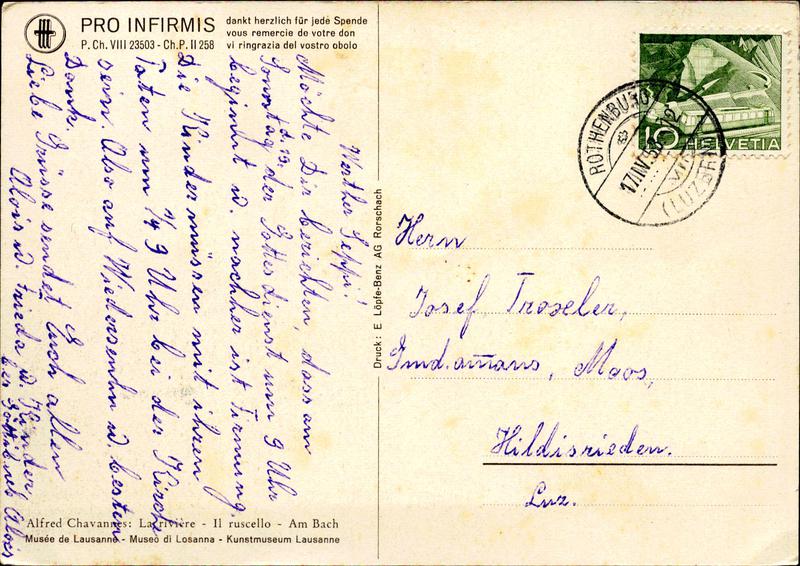 PRO INFIRMIS
P. Ch. VIII 23503 - Ch. P. II 258
dankt herzlich für jede Spende
vous remercie de votre don
vi ringrazia del vostro obolo
Werther Seppi!
Möchte Dir berichten, dass am
Sonntag d. 19. der Gottesdienst um 9 Uhr
beginnt u. nachher ist Firmung.
Die Kinder müssen mit ihren
Paten um 1/4 9 Uhr bei der Kirche
sein. Also auf Wiedersehn u. besten
Dank.
Liebe Grüsse sendet Euch allen
Alois u. Frieda u. Kinder
bes. Alois
Alfred Chavannes: La rivière - Il ruscello - Am Bach
Musée de Lausanne - Museo di Losanna - Kunstmuseum Lausanne
Druck: E. Löpfe-Benz AG Rorschach
10 HELVETIA
ROTHENBURG
17.IV.53
(LUZERN)
Hern
Josef Troxeler,
Gmd.amans, Moos,
Hildisrieden.
Luz.